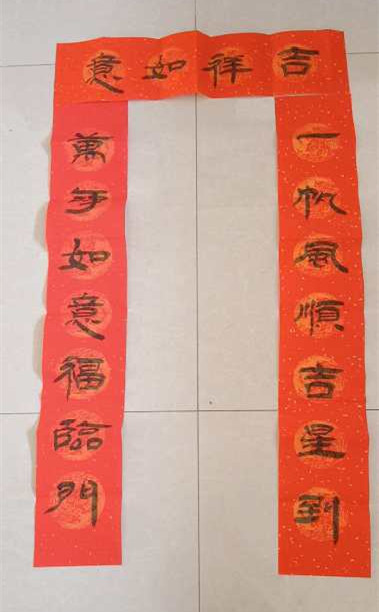 吉祥如意
一帆風順吉星到
萬事如意福臨門